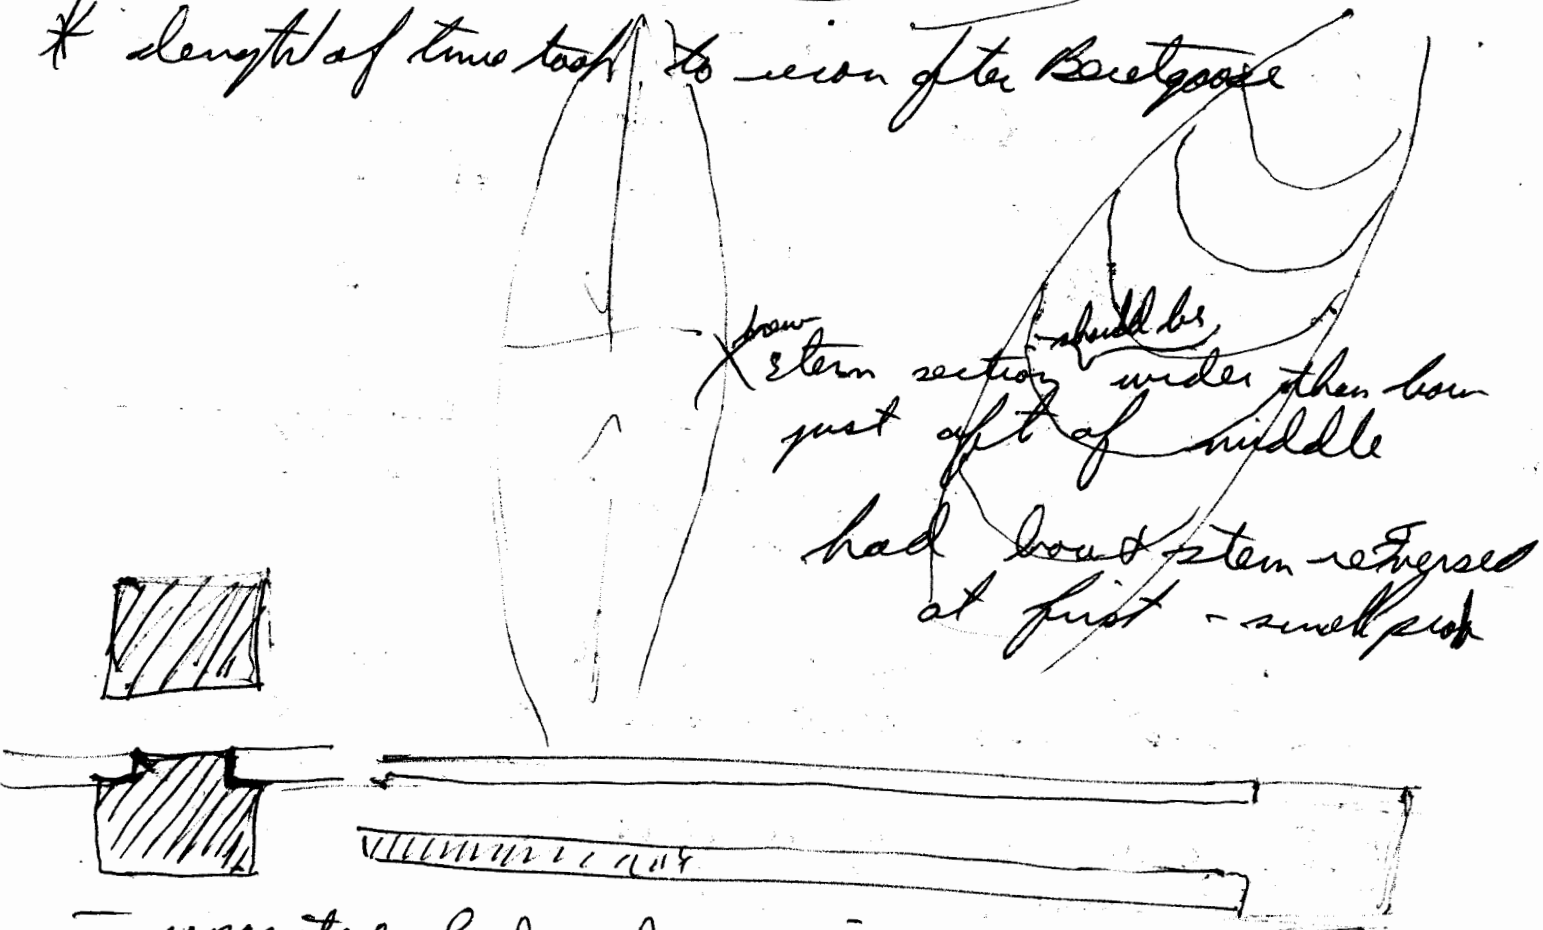 * length of time took to recon after Beetgoose
bow
Stern section should be wider than bow
just aft of middle
had bow & stern reversed
at first - small prob